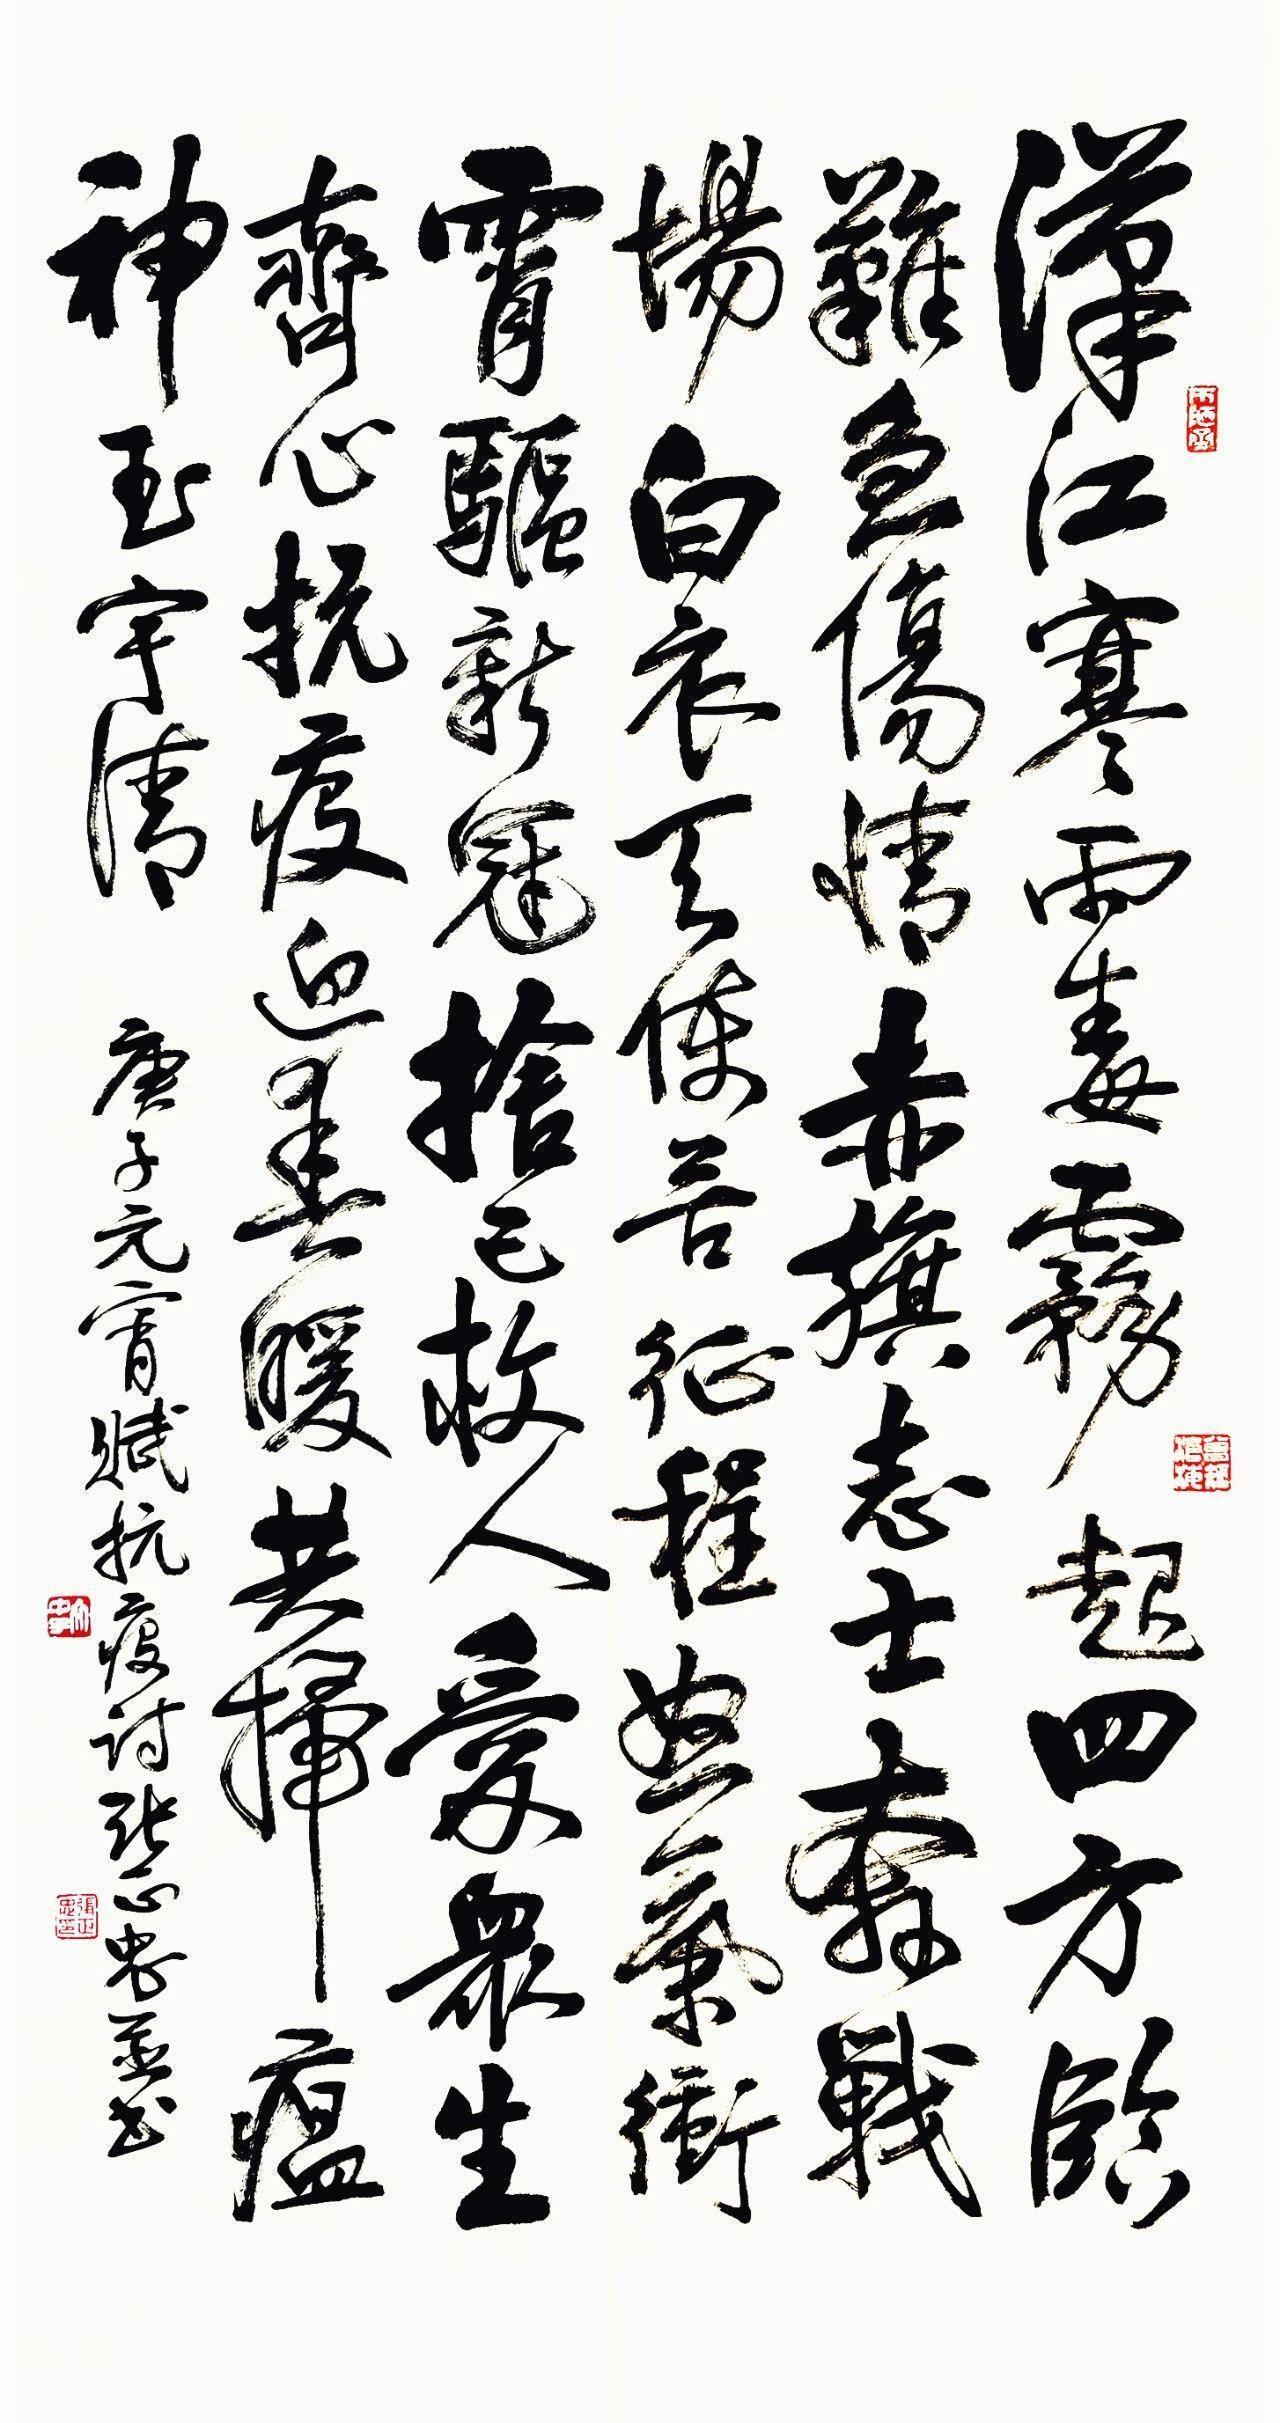 漢江寒雨毒霧起四方臨
難急傷情赤旗志士奔戰
場白衣天使苦征程氣衝
霄驅新冠捨己救人愛眾生
齊心抗疫迎春暖共掃瘟
神玉宇清
庚子元宵賦抗疫詩張正忠並書
張正忠印